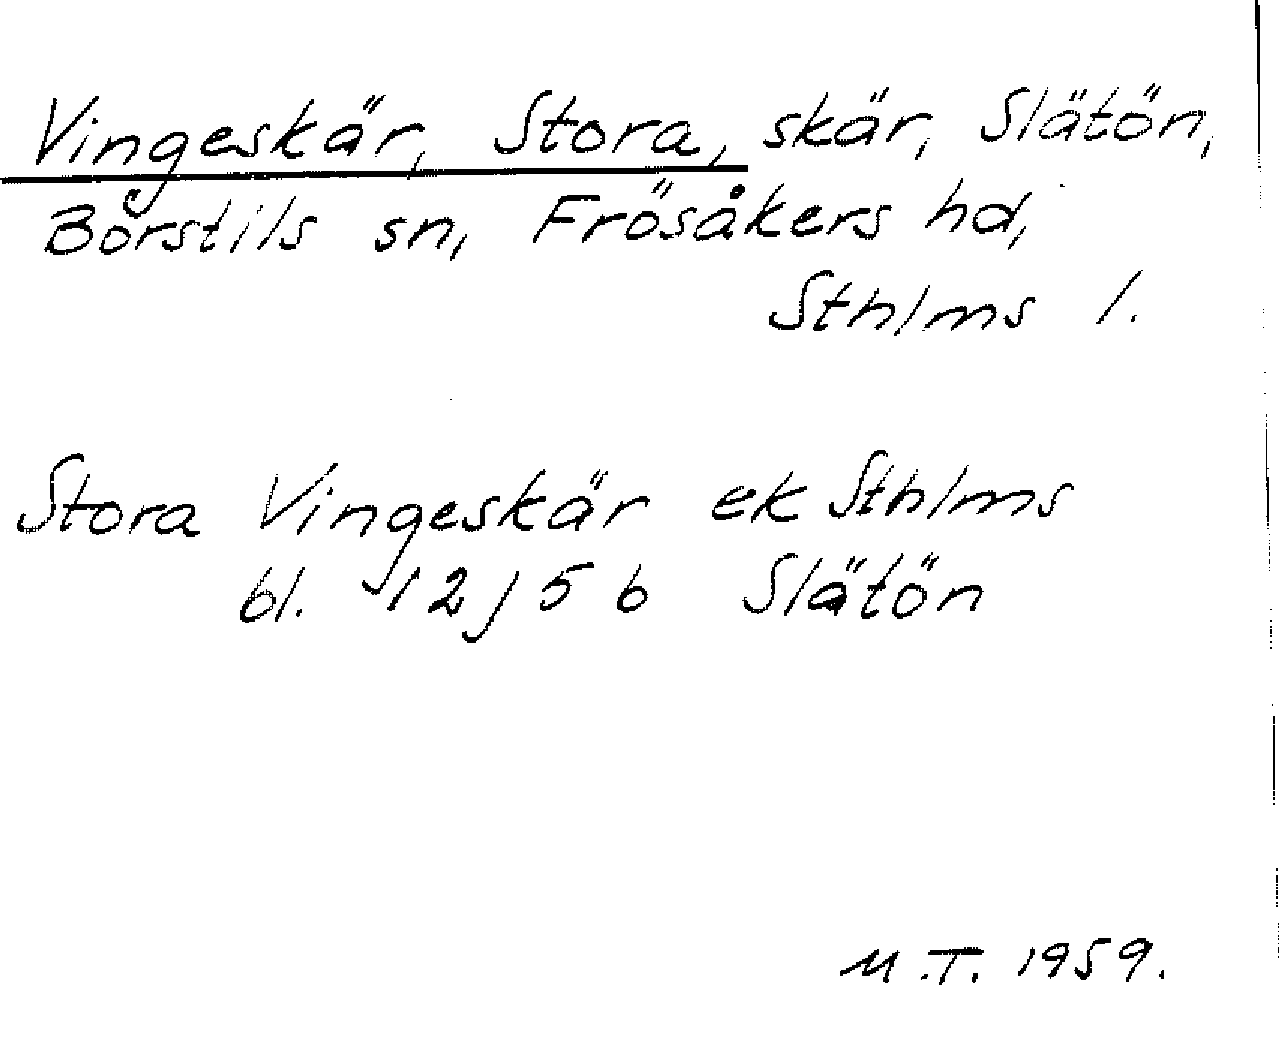 Vingeskär, Stora, skär, Slätön,
Börstils sn, Frösåkers hd,
Sthlms l.
Stora Vingeskär ek Sthlms
bl. 12J 5 b Slätön
M.T. 1959.